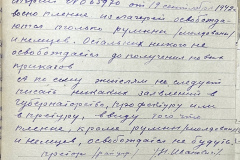 № 03970 от 19 сентября 1942
военнопленные из лагерей освобожда-
ются только румыны /молдаване/
и немцы. Остальные никого не
освобождается до получения новых
приказов
А по сему жителям не следует
писать никаких заявлений в
губернаторство, префектуру или
в претуру, ввиду того что
пленные, кроме румын /молдаван/
и немцев, освобождать не будут.